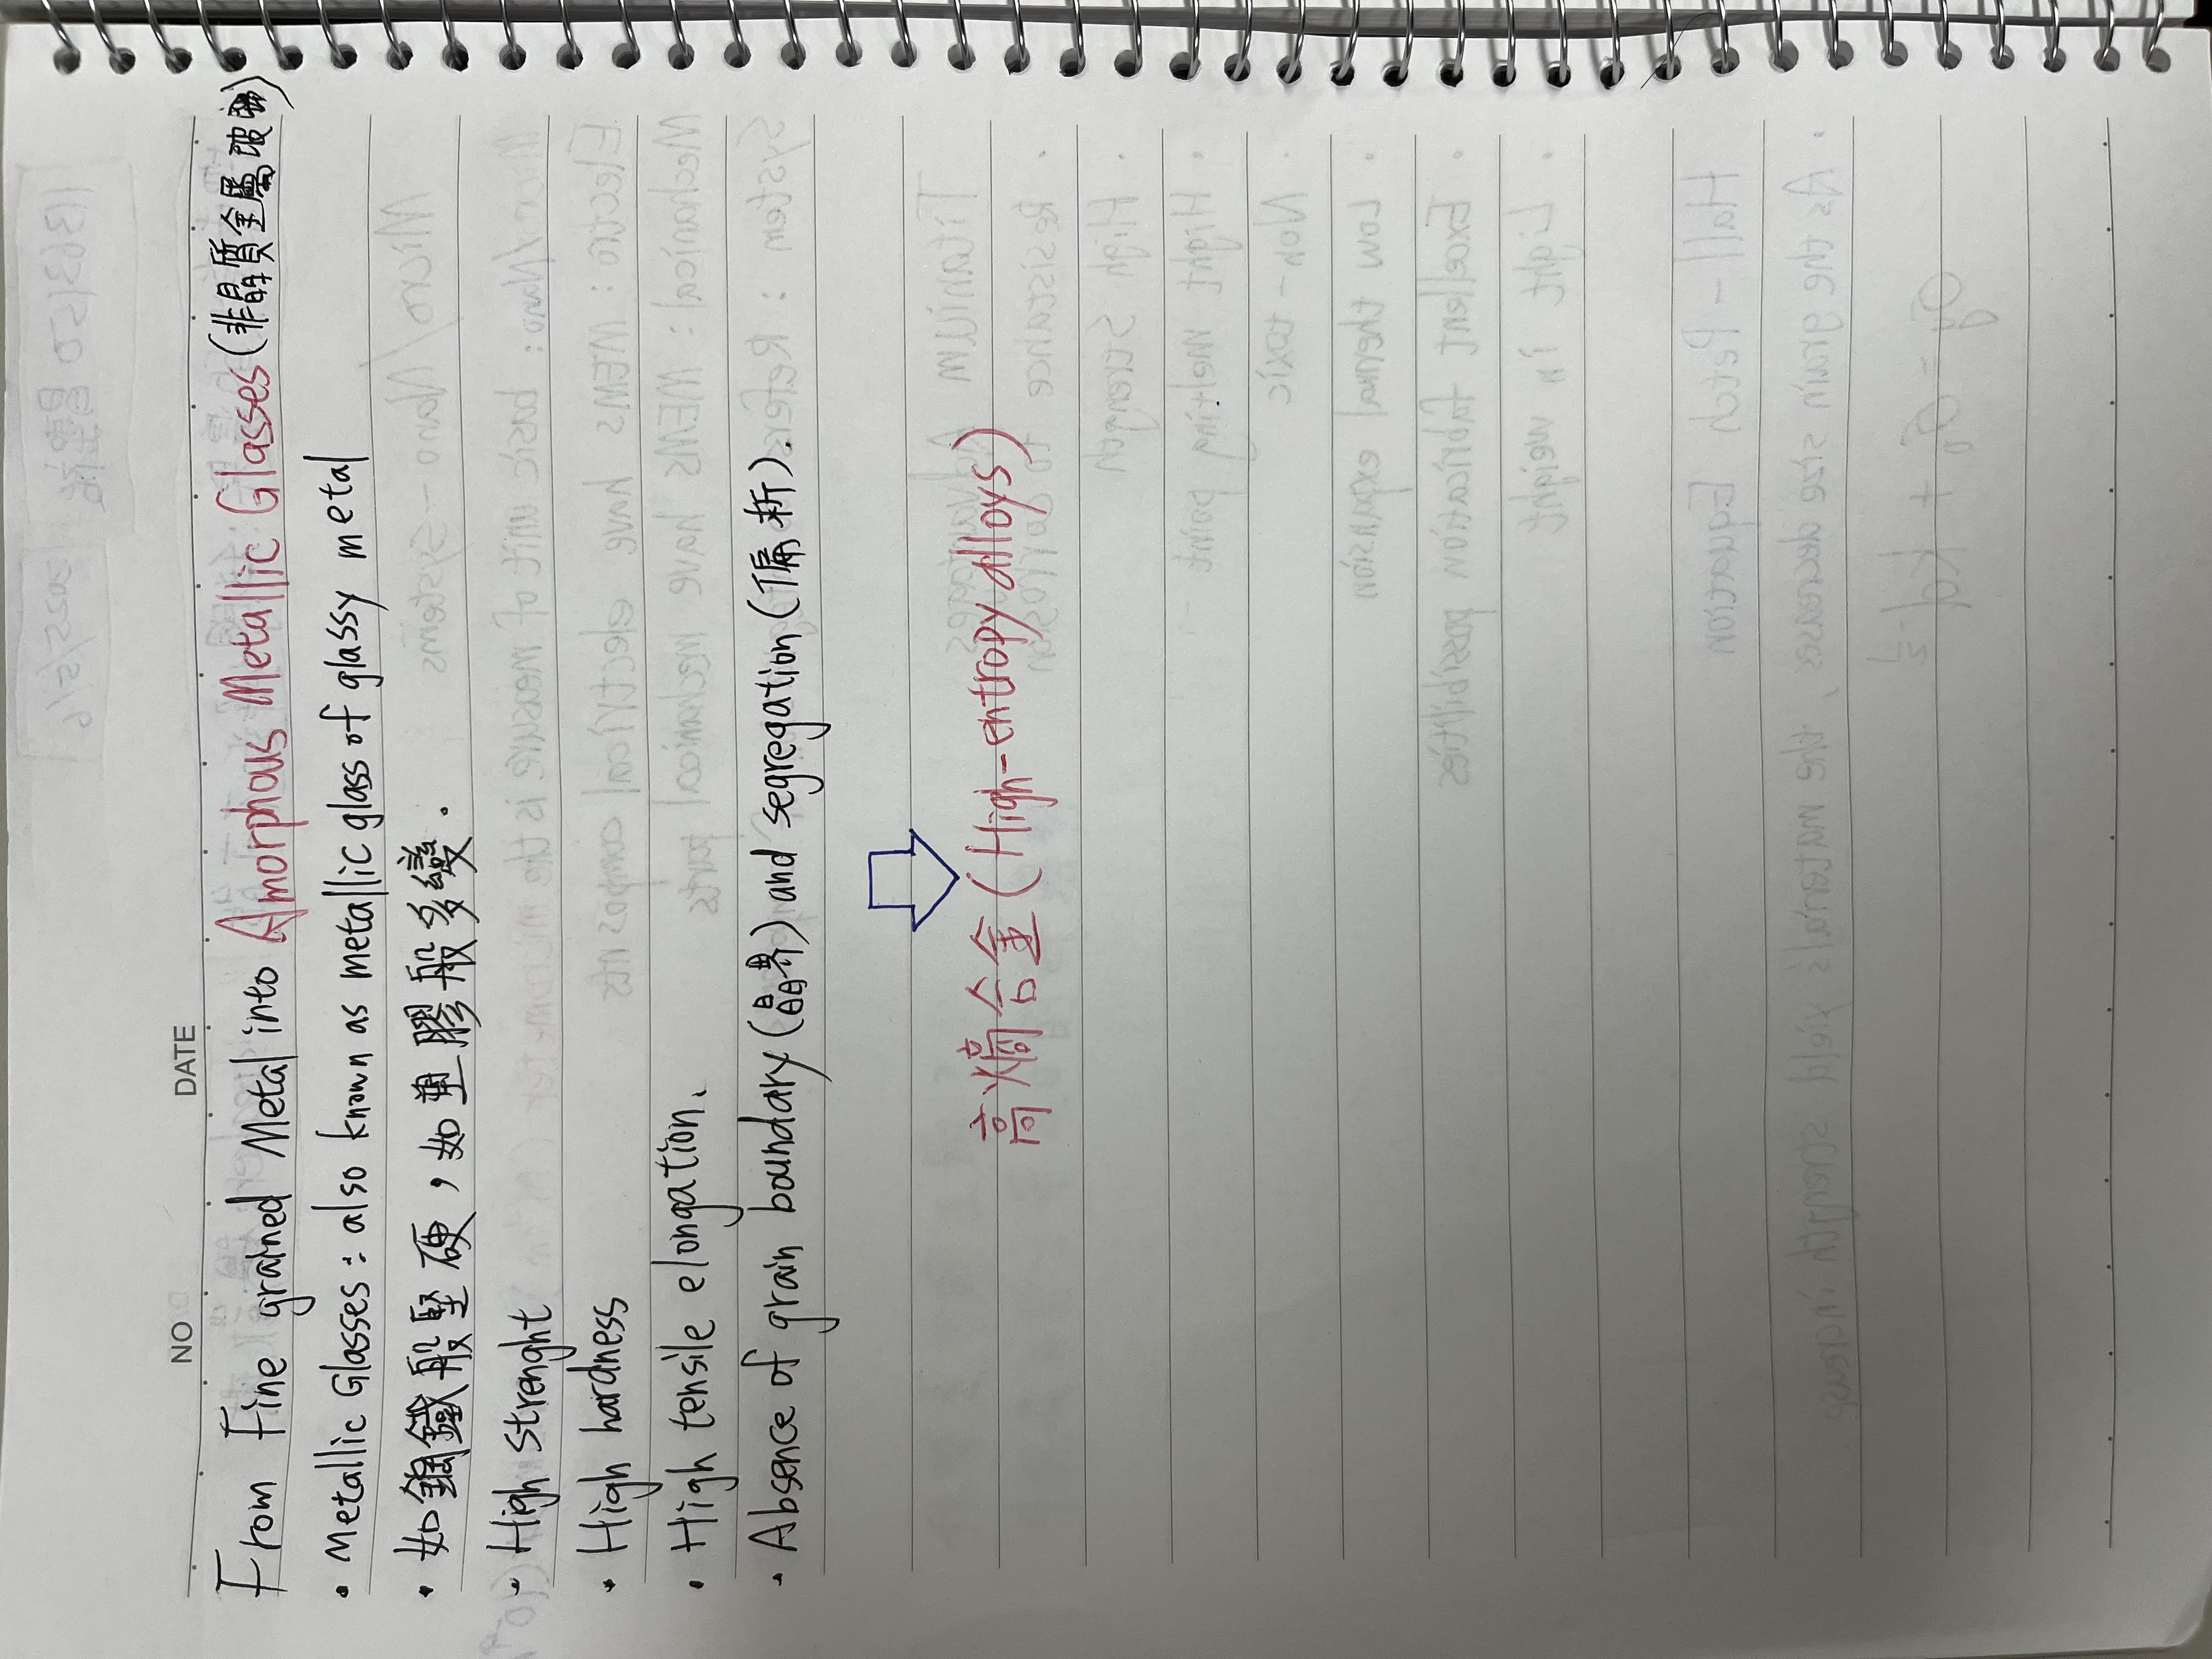 NO DATE
From Fine grained Metal into Amorphous Metallic Glasses (非晶質金屬玻璃)
• Metallic Glasses : also known as metallic glass of glassy metal
• 如鋼鐵般堅硬，如塑膠般多變.
• High strenght
• High hardness
• High tensile elongation.
• Absence of grain boundary (晶界) and segregation (偏析).
高熵合金 (High-entropy alloys)